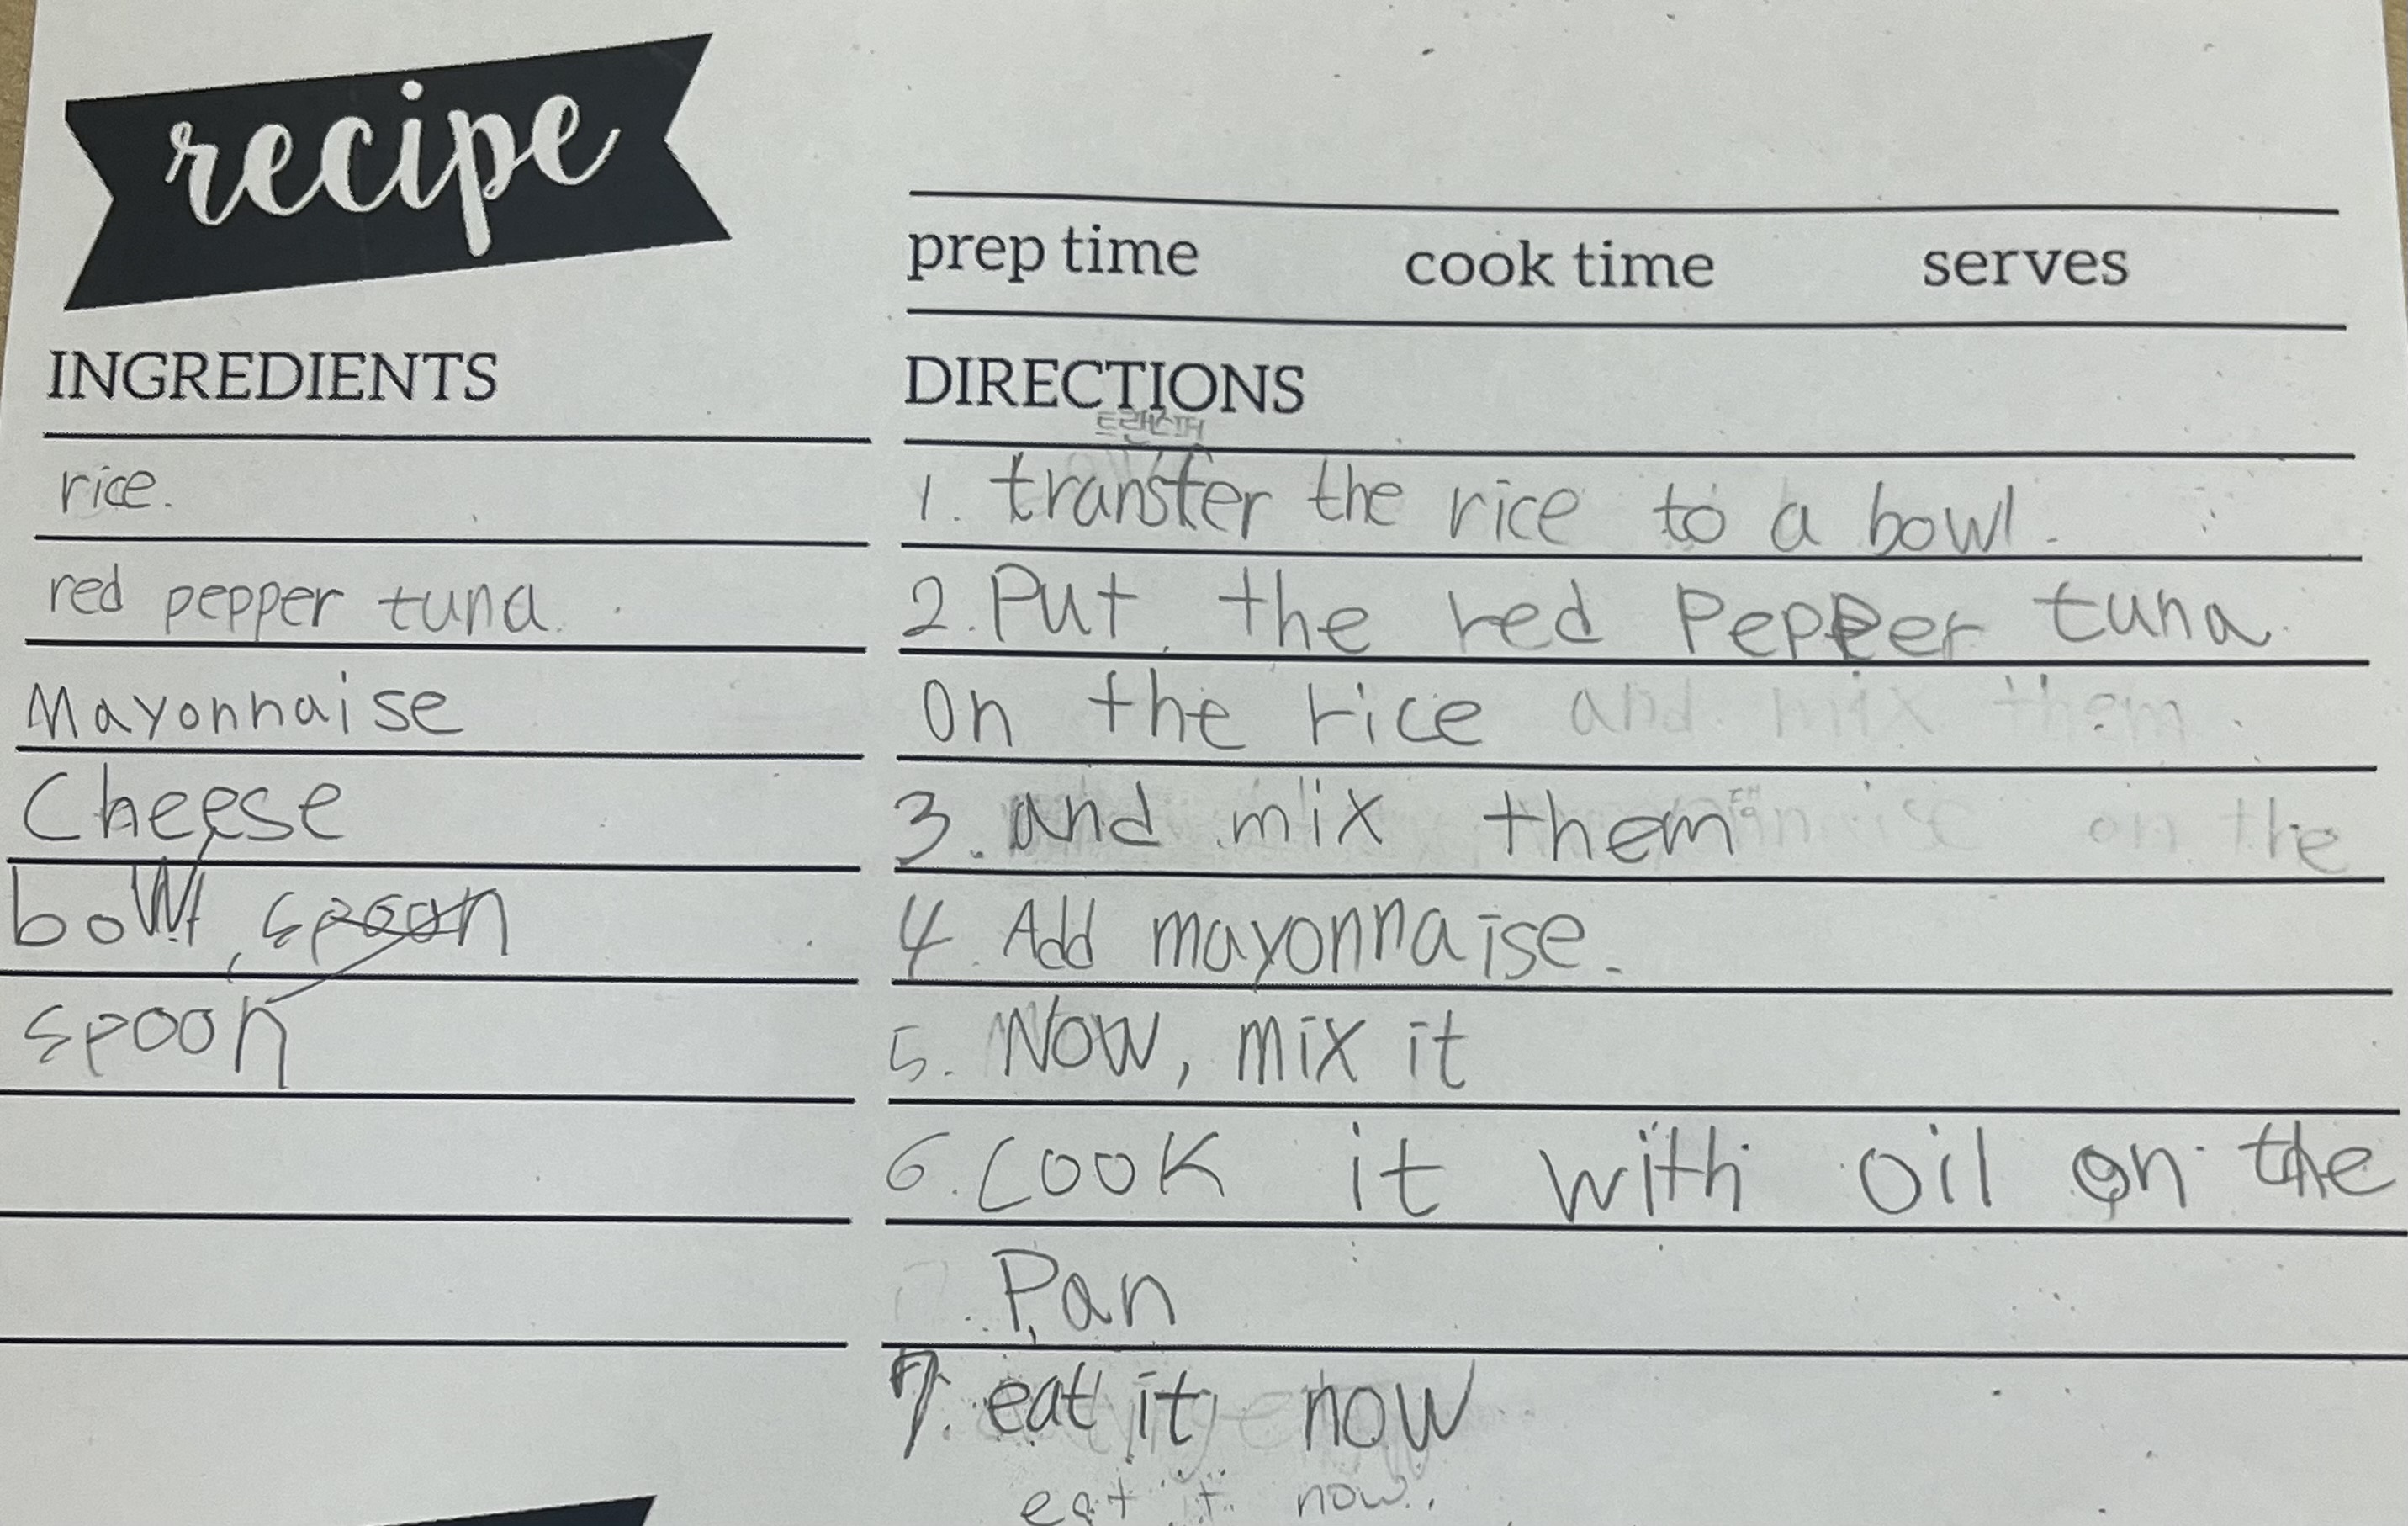 recipe
prep time cook time serves
INGREDIENTS
rice.
red pepper tuna
Mayonnaise
Cheese
bowl, spoon
spoon
DIRECTIONS
트랜스퍼
1. transfer the rice to a bowl.
2. Put the red Pepper tuna
on the rice and mix them.
3. and mix them on the
4. Add mayonnaise.
5. Now, mix it
6. Cook it with oil on the
Pan
7. eat it now
eat it now.